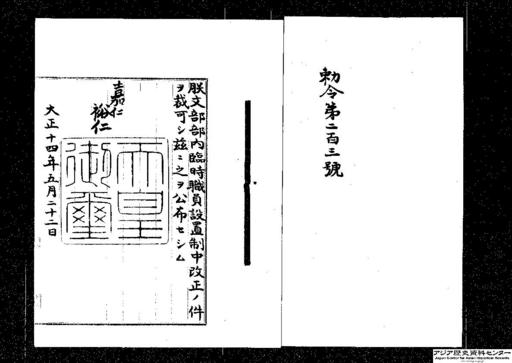 勅令第二百三號
朕文部部內臨時職員設置制中改正ノ件
ヲ裁可シ茲ニ之ヲ公布セシム
嘉仁
裕仁
天皇御璽
大正十四年五月二十二日
アジア歴史資料センター
Japan Center for Asian Historical Records